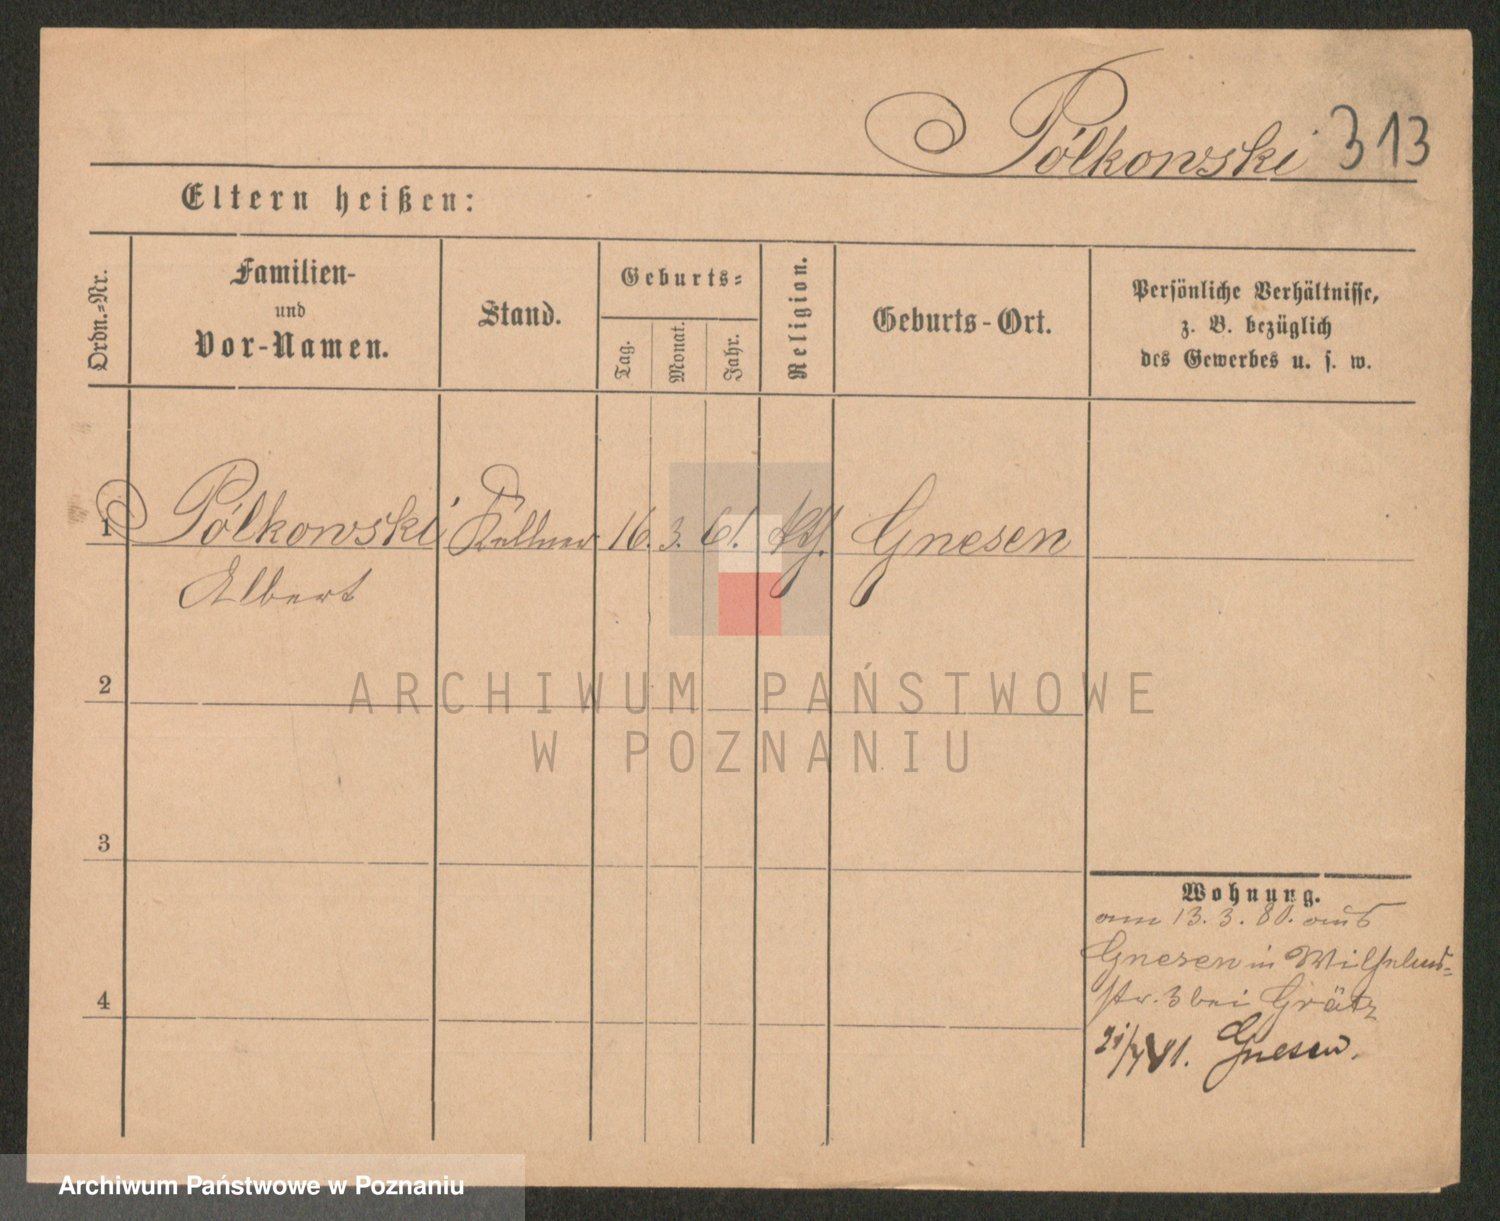 Pólkowski 313
Eltern heißen:
Ordn.=Nr.
Familien-
und
Vor-Namen.
Stand.
Geburts=
Tag.
Monat.
Jahr.
Religion.
Geburts-Ort.
Persönliche Verhältnisse,
z. B. bezüglich
des Gewerbes u. s. w.
1 Pólkowski Kellner 16. 3. 61. Gnesen
Albert
2
3
4
Wohnung.
am 13. 3. 81. aus
Gnesen in Wilhelms=
str. 3 bei Grätz
Gnesen.
ARCHIWUM PAŃSTWOWE
W POZNANIU
Archiwum Państwowe w Poznaniu